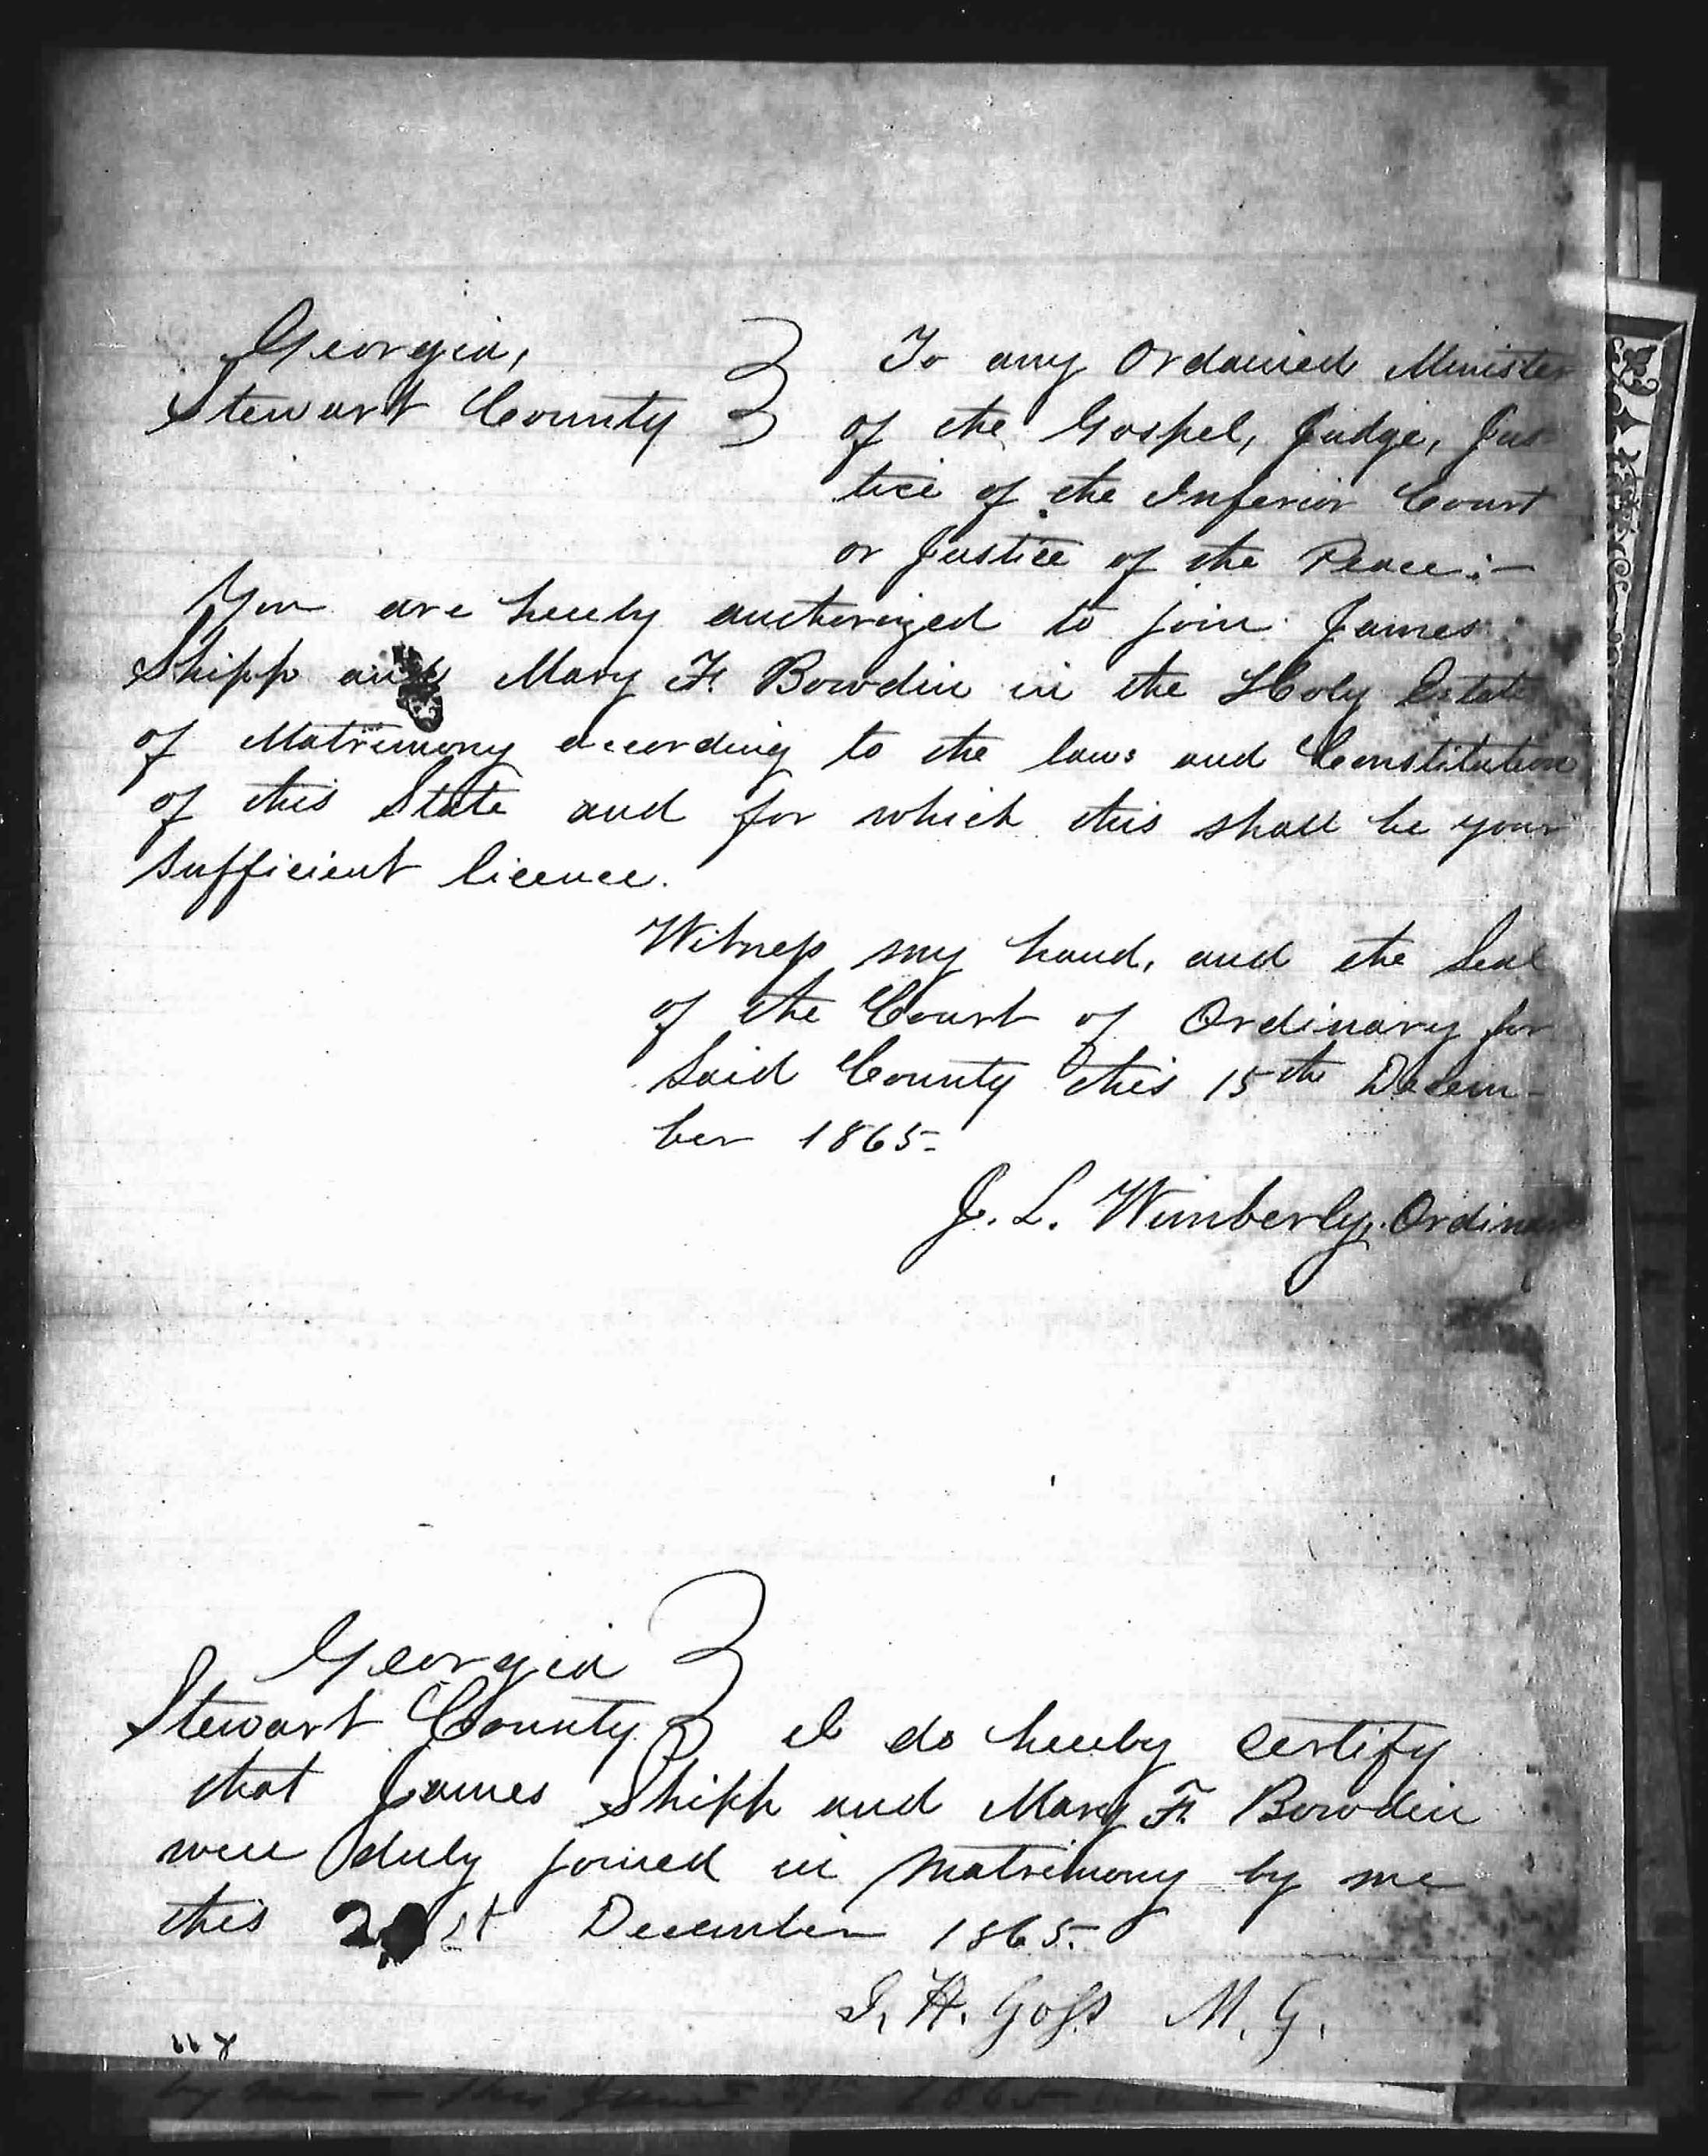 Georgia,
Stewart County
To any Ordained Minister
of the Gospel, Judge, Jus
tice of the Inferior Court
or Justice of the Peace:-
You are hereby authorized to join James
Shipp and Mary F. Bowdin in the Holy Estate
of Matrimony according to the laws and Constitution
of this State and for which this shall be your
sufficient licence.
Witness my hand, and the Seal
of the Court of Ordinary for
Said County this 15th Decem-
ber 1865-
J. L. Wimberly, Ordinary
Georgia
Stewart County I do hereby certify
that James Shipp and Mary F. Bowdin
were duly joined in matrimony by me
this st December 1865.
Goss M. G.